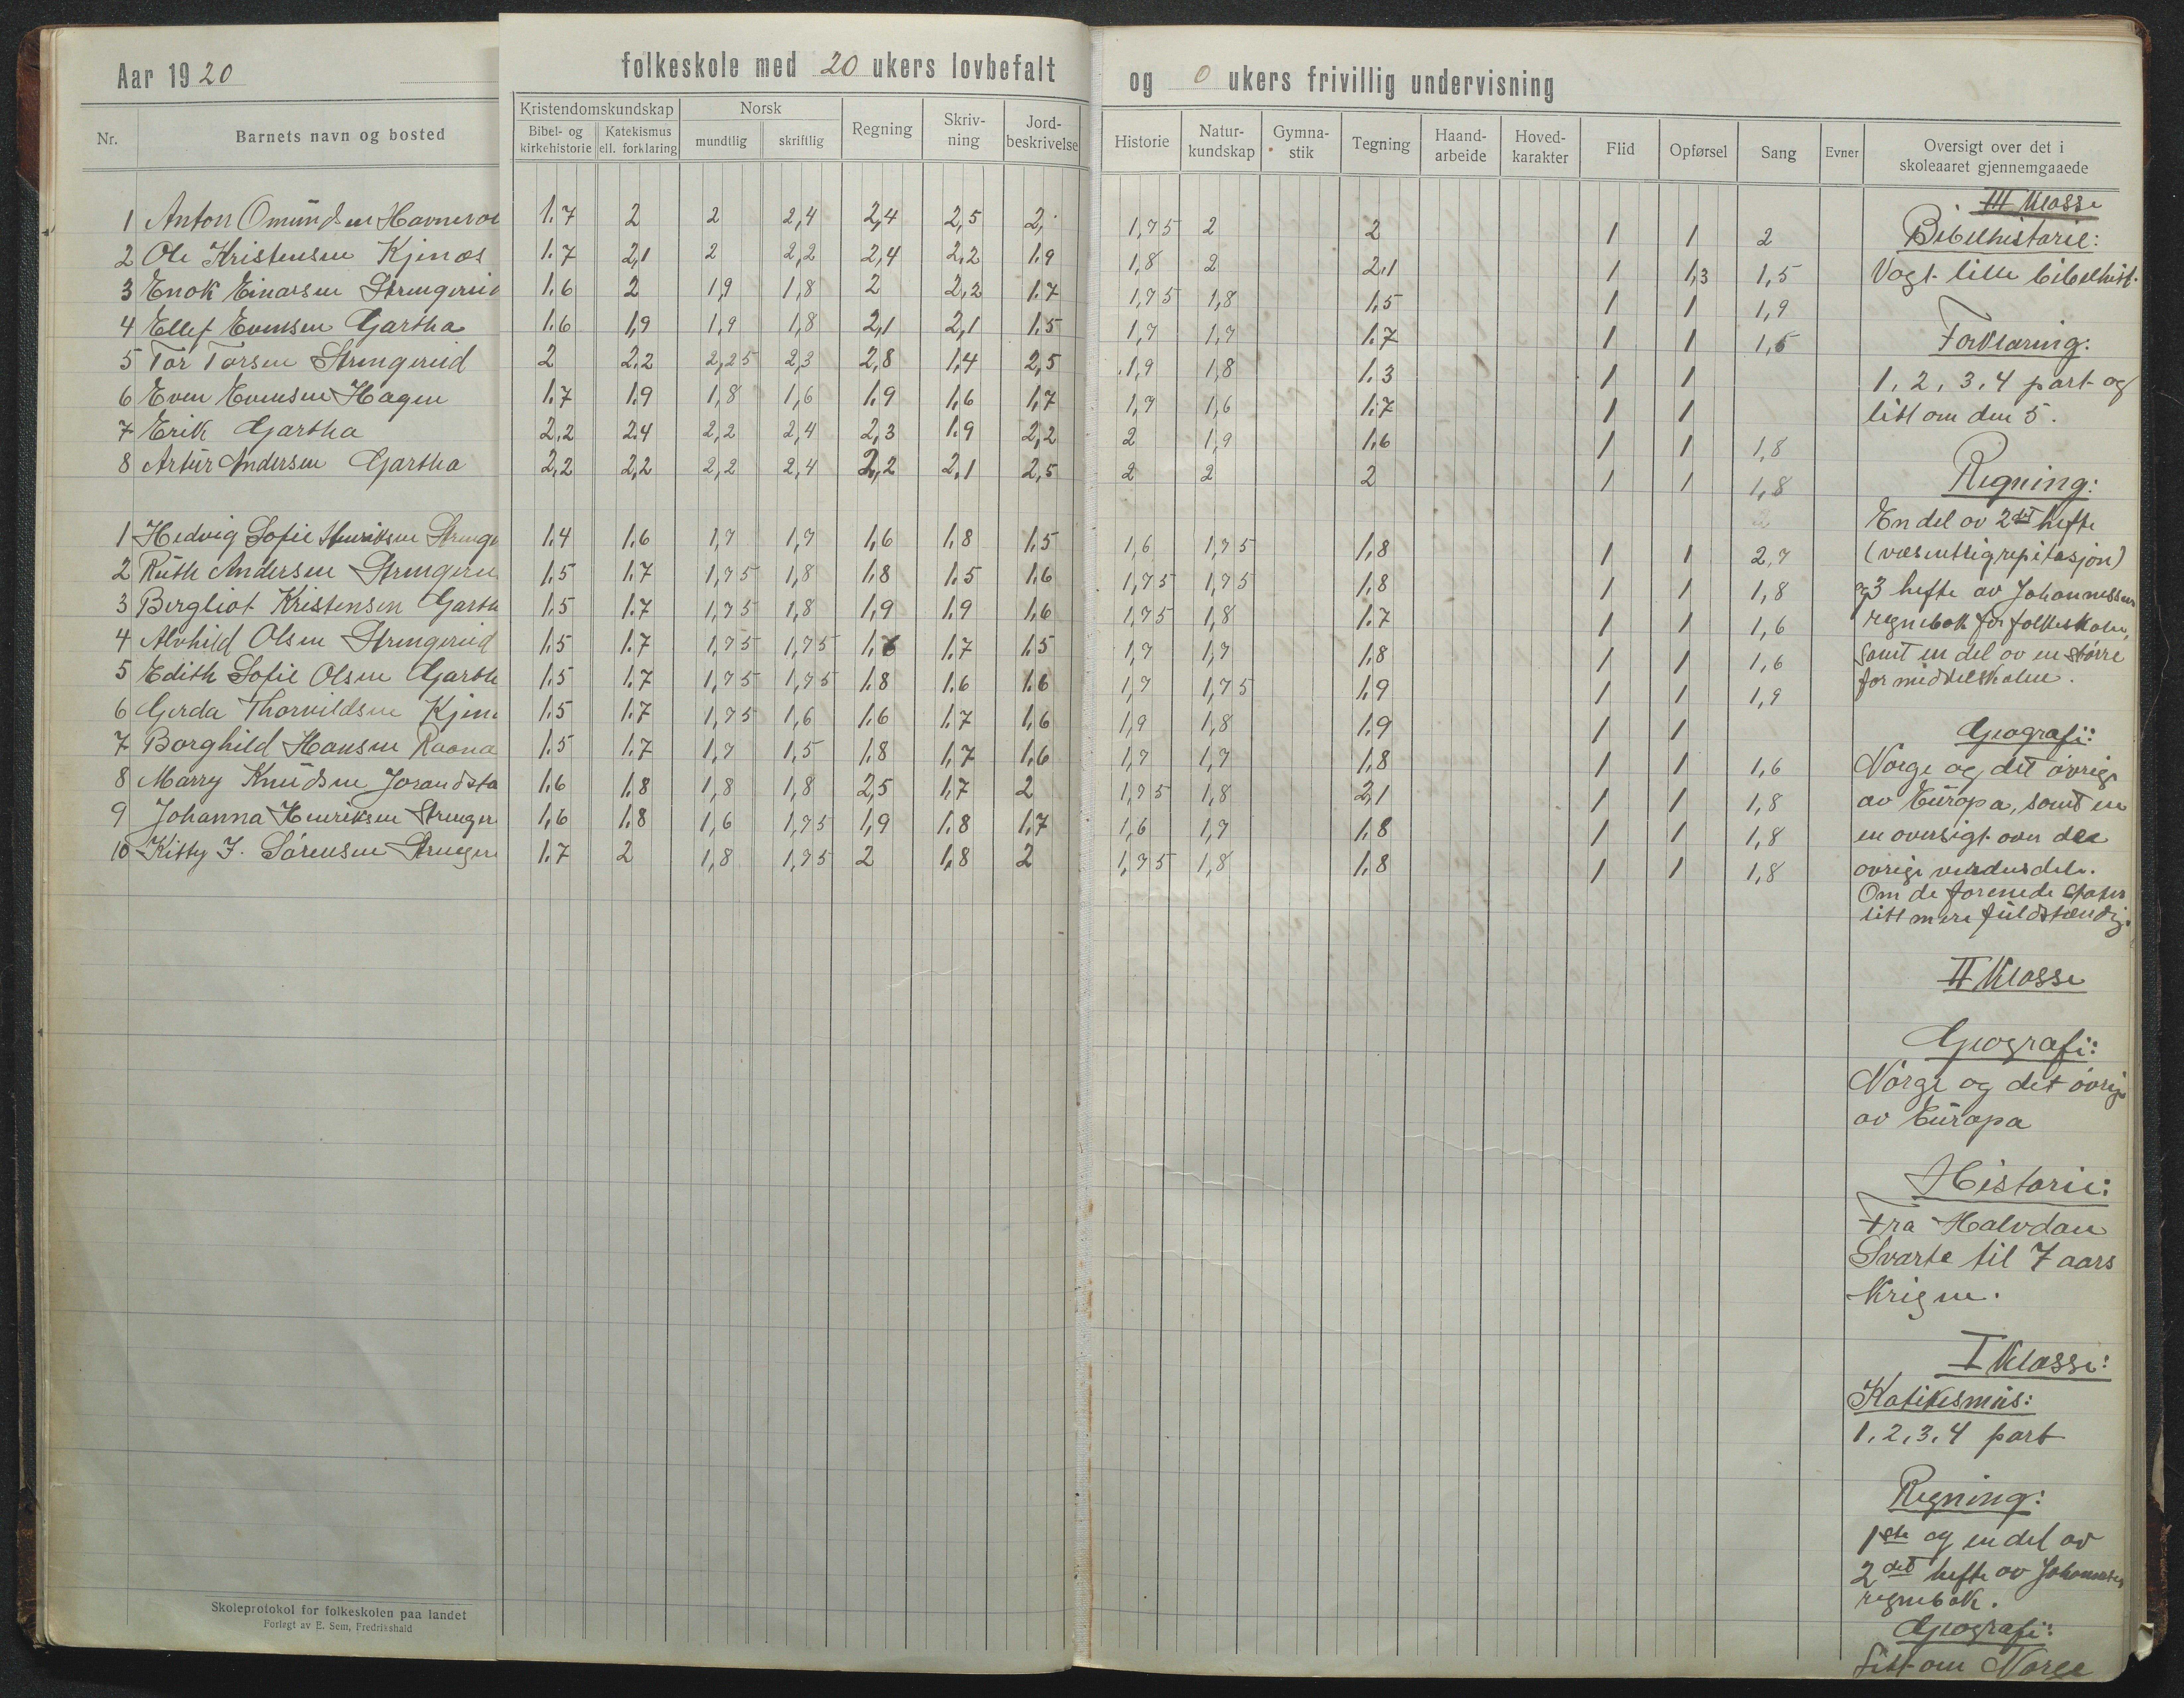 Aar 1920
folkeskole med 20 ukers lovbefalt og 0 ukers frivillig undervisning
Nr. Barnets navn og bosted Kristendomskundskap Bibel- og kirkehistorie Katekismus ell. forklaring Norsk mundtlig skriftlig Regning Skrivning Jordbeskrivelse Historie Naturkundskap Gymnastik Tegning Haandarbeide Hovedkarakter Flid Opførsel Sang Evner Oversigt over det i skoleaaret gjennemgaaede
1 Anton Omundsen 1.7 2 2 2,4 2,4 2,5 2, 1,75 2 2 1 1 2
2 Ole Kristensen Kjenæs 1.7 2,1 2 2,2 2,4 2,2 1.9 1,8 2 2.1 1 1,3 1,5
3 Enok Einarsen 1.6 2 1,9 1,8 2 2,2 1.7 1,75 1,8 1,5 1 1 1,9
4 Ellef Evensen Gartha 1.6 1,9 1,9 1,8 2,1 2,1 1.5 1,7 1,7 1.7 1 1 1,5
5 Tor Torsen Strengerud 2 2.2 2,25 2,3 2,8 1,4 2,5 1,9 1,8 1.3 1 1
6 Even Evensen Hagen 1.7 1.9 1,8 1,6 1.9 1,6 1,7 1,7 1,6 1.7 1 1
7 Erik Gartha 2,2 2.4 2,2 2,4 2,3 1.9 2,2 2 1,9 1.6 1 1 1,8
8 Artur Andersen Gartha 2,2 2,2 2,2 2,4 2,2 2,1 2,5 2 2 2 1 1 1,8
1 Hedvig Sofie Henriksen 1.4 1.6 1,7 1,7 1,6 1,8 1,5 1,6 1,75 1,8 1 1 2,7
2 Ruth Andersen 1.5 1.7 1,75 1,8 1.8 1.5 1.6 1,75 1,75 1.8 1 1 1,8
3 Bergliot Kristensen 1.5 1.7 1,75 1,8 1,9 1.9 1,6 1,75 1,8 1.7 1 1 1,6
4 Alvhild Olsen Strengerud 1.5 1.7 1,75 1,75 1.7 1.5 1,7 1,7 1.8 1 1 1,6
5 Edith Sofie Olsen 1.5 1.7 1,75 1,75 1.8 1.6 1.6 1,7 1,75 1.9 1 1 1,9
6 Gerda Thorvildsen 1.5 1.7 1,75 1,6 1.6 1.7 1,6 1,9 1,8 1.9 1 1
7 Borghild Hansen 1.5 1.7 1,7 1,5 1.8 1,7 1,6 1,7 1,7 1.8 1 1 1,6
8 Marry Knudsen 1.6 1.8 1,8 1,8 2,5 1.7 2 1,75 1,8 2,1 1 1 1,8
9 Johanna Henriksen 1,6 1.8 1,6 1,75 1,9 1.8 1.7 1,6 1,7 1.8 1 1 1,8
10 Kitty J. Sørensen 1.7 2 1,8 1,75 2 1,8 2 1,75 1,8 1.8 1 1 1,8
III Klasse
Bibelhistorie:
Vogt. lille bibelhist.
Forklaring:
1, 2, 3, 4 part og
litt om den 5.
Regning:
En del av 2det hefte
(væsentlig repitasjon)
3 hefte av Johannessens
regnebok for folkeskolen,
samt en del av en større
for middelskolen.
Geografi:
Norge og det øvrige
av Europa, samt en
en oversigt over de
øvrige verdensdele.
Om de forenede stater
litt mere fuldstændig.
II Klasse
Geografi:
Norge og det øvrige
av Europa
Historie:
Fra Halvdan
Svarte til 7 aars
Krigen.
I Klasse:
Katikesmus:
1, 2, 3, 4 part
Regning:
1ste og en del av
2det hefte av Johannesens
regnebok.
Geografi:
Litt om Norge
Skoleprotokol for folkeskolen paa landet
Forlagt av E. Sem, Fredrikshald